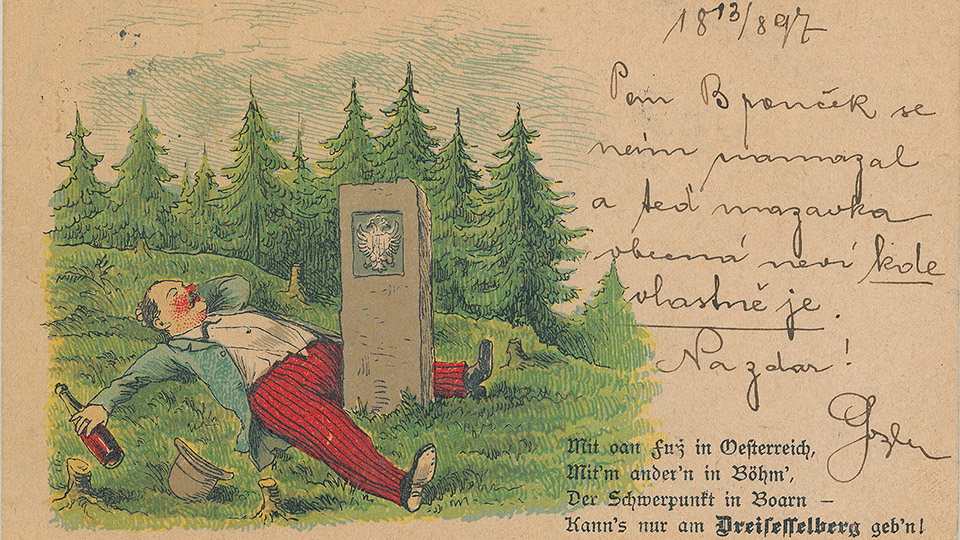 18 13/8 97
Pan Brouček se
neim namazal
a teď mazavka
obecná neví kde
vlastně je.
Na zdar!
Mit oan Fuß in Oesterreich,
Mit'm ander'n in Böhm',
Der Schwerpunkt in Boarn –
Kann's nur am Dreisesselberg geb'n!